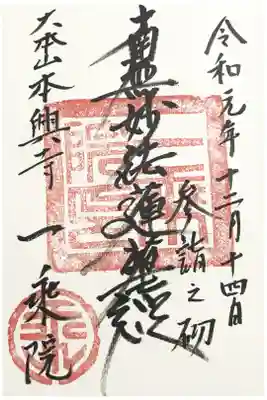 令和元年十二月十四日
参詣之砌
南無妙法蓮華経
大本山本興寺
一乘院